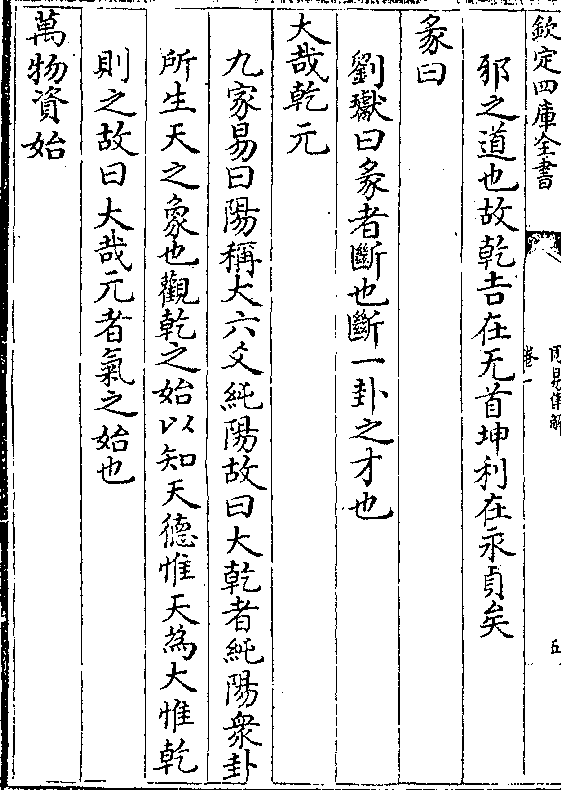 欽定四庫全書
周易集解
卷一
五
邪之道也故乾吉在无首坤利在永貞矣
彖曰
劉瓛曰彖者斷也斷一卦之才也
大哉乾元
九家易曰陽稱大六爻純陽故曰大乾者純陽衆卦
所生天之象也觀乾之始以知天德惟天為大惟乾
則之故曰大哉元者氣之始也
萬物資始